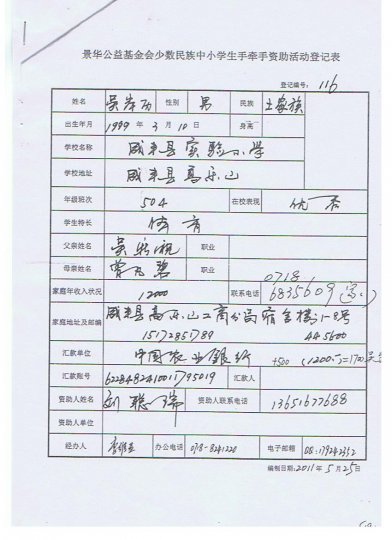 景华公益基金会少数民族中小学生手牵手资助活动登记表
登记编号: 116
姓名 性别 男 民族 土家族
出生年月 1999 年 3 月 10 日 身高
学校名称 咸丰县实验小学
学校地址 咸丰县高乐山
年级班次 504 在校表现 优秀
学生特长 体育
父亲姓名 职业
母亲姓名 职业
家庭年收入状况 12000 联系电话 0718-6835609
家庭地址及邮编 咸丰县高乐山工商公司宿舍楼
15172851789 445600
汇款单位 中国农业银行 +500 (1200)=1700
汇款账号 6228482410011795019 汇款人
资助人姓名 刘聪瑞 资助人联系电话 13651677688
资助人单位
经办人 办公电话 0718-8241220 电子邮箱 QQ:179242352
编制日期:2011年5月25日